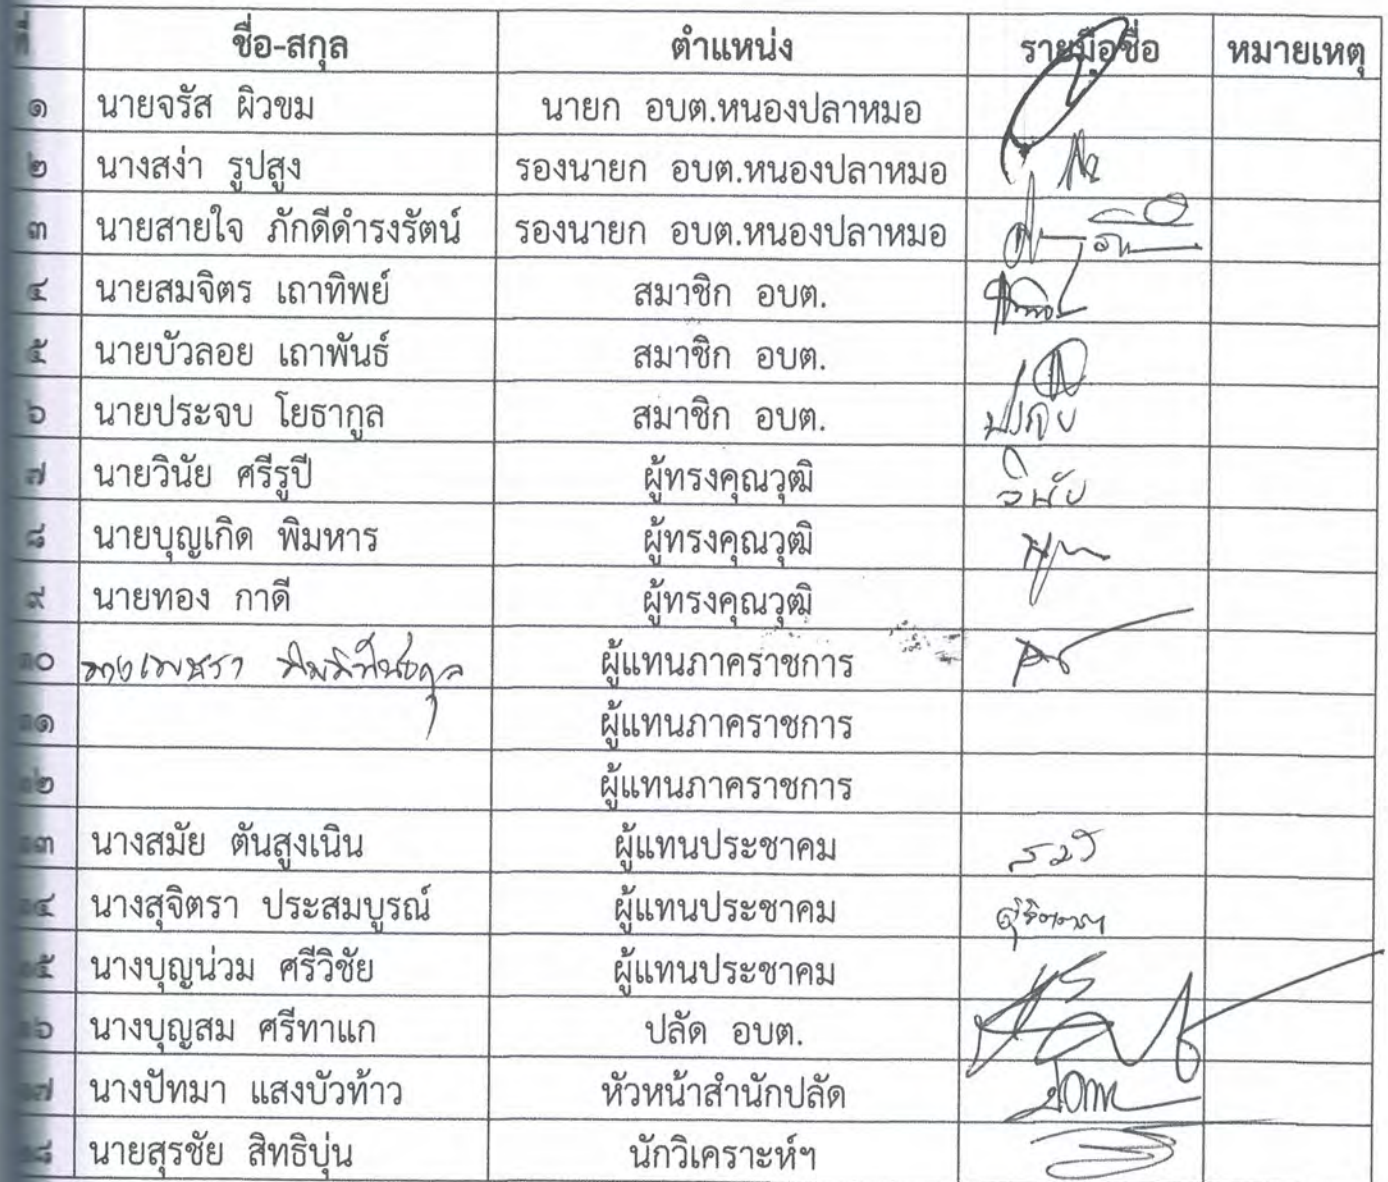 ชื่อ-สกุล ตำแหน่ง รายมือชื่อ หมายเหตุ
๑ นายจรัส ผิวขม นายก อบต.หนองปลาหมอ
๒ นางสง่า รูปสูง รองนายก อบต.หนองปลาหมอ
๓ นายสายใจ ภักดีดำรงรัตน์ รองนายก อบต.หนองปลาหมอ
๔ นายสมจิตร เถาทิพย์ สมาชิก อบต.
๕ นายบัวลอย เถาพันธ์ สมาชิก อบต.
๖ นายประจบ โยธากูล สมาชิก อบต.
๗ นายวินัย ศรีรูปี ผู้ทรงคุณวุฒิ วินัย
๘ นายบุญเกิด พิมหาร ผู้ทรงคุณวุฒิ
๙ นายทอง กาดี ผู้ทรงคุณวุฒิ
๑๐ ผู้แทนภาคราชการ
๑๑ ผู้แทนภาคราชการ
๑๒ ผู้แทนภาคราชการ
๑๓ นางสมัย ตันสูงเนิน ผู้แทนประชาคม
๑๔ นางสุจิตรา ประสมบูรณ์ ผู้แทนประชาคม
๑๕ นางบุญน่วม ศรีวิชัย ผู้แทนประชาคม
๑๖ นางบุญสม ศรีทาแก ปลัด อบต.
๑๗ นางปัทมา แสงบัวท้าว หัวหน้าสำนักปลัด
๑๘ นายสุรชัย สิทธิบุ่น นักวิเคราะห์ฯ